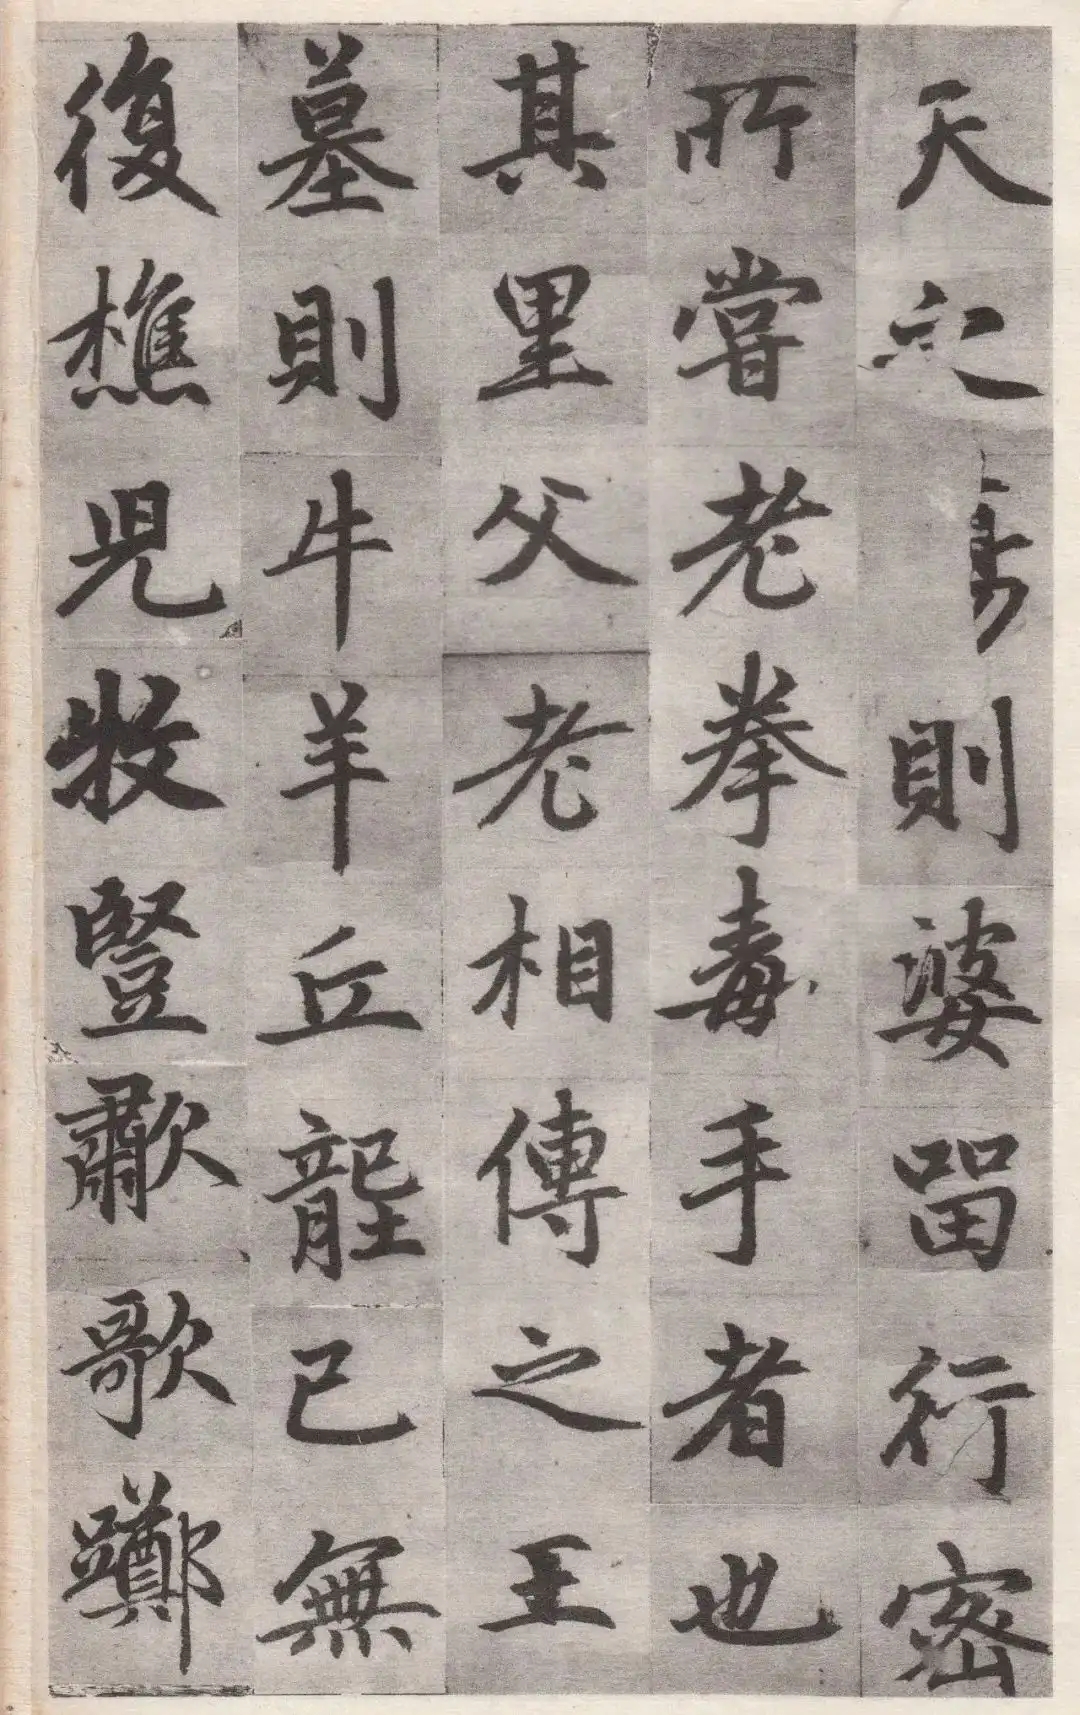 天之 則婆留行密
所嘗老拳毒手者也
其里父老相傳之王
墓則牛羊丘壟已無
復樵兒牧豎歗歌躑